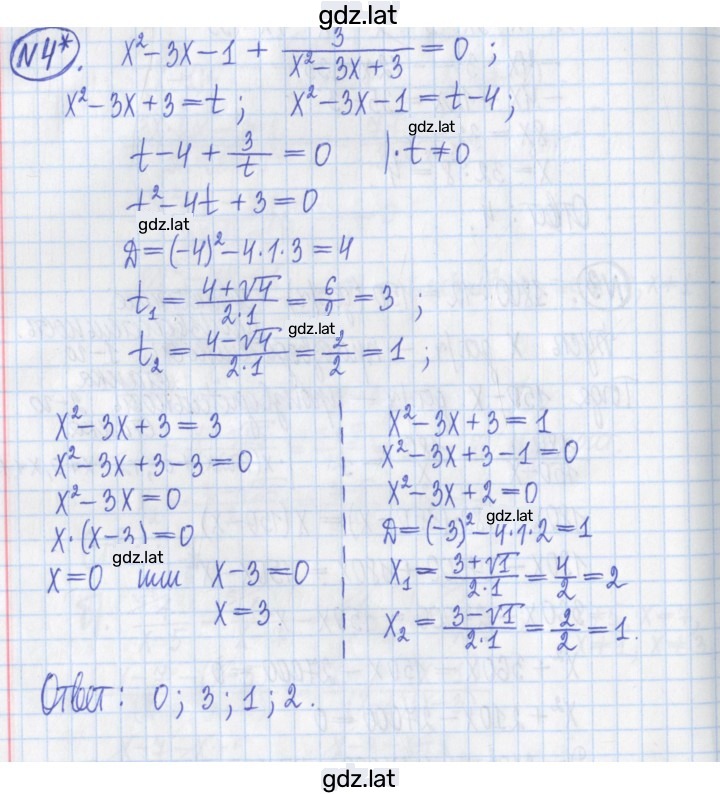 gdz.lat
N4*. x² - 3x - 1 + 3/(x² - 3x + 3) = 0 ;
x² - 3x + 3 = t ; x² - 3x - 1 = t - 4 ;
gdz.lat
t - 4 + 3/t = 0 |·t ≠ 0
t² - 4t + 3 = 0
gdz.lat
Д = (-4)² - 4·1·3 = 4
t₁ = (4 + √4)/(2·1) = 6/2 = 3 ;
gdz.lat
t₂ = (4 - √4)/(2·1) = 2/2 = 1 ;
x² - 3x + 3 = 3
x² - 3x + 3 - 3 = 0
x² - 3x = 0
x·(x - 3) = 0
gdz.lat
x = 0 или x - 3 = 0
x = 3.
x² - 3x + 3 = 1
x² - 3x + 3 - 1 = 0
x² - 3x + 2 = 0
gdz.lat
Д = (-3)² - 4·1·2 = 1
x₁ = (3 + √1)/(2·1) = 4/2 = 2
x₂ = (3 - √1)/(2·1) = 2/2 = 1.
Ответ: 0 ; 3 ; 1 ; 2 .
gdz.lat